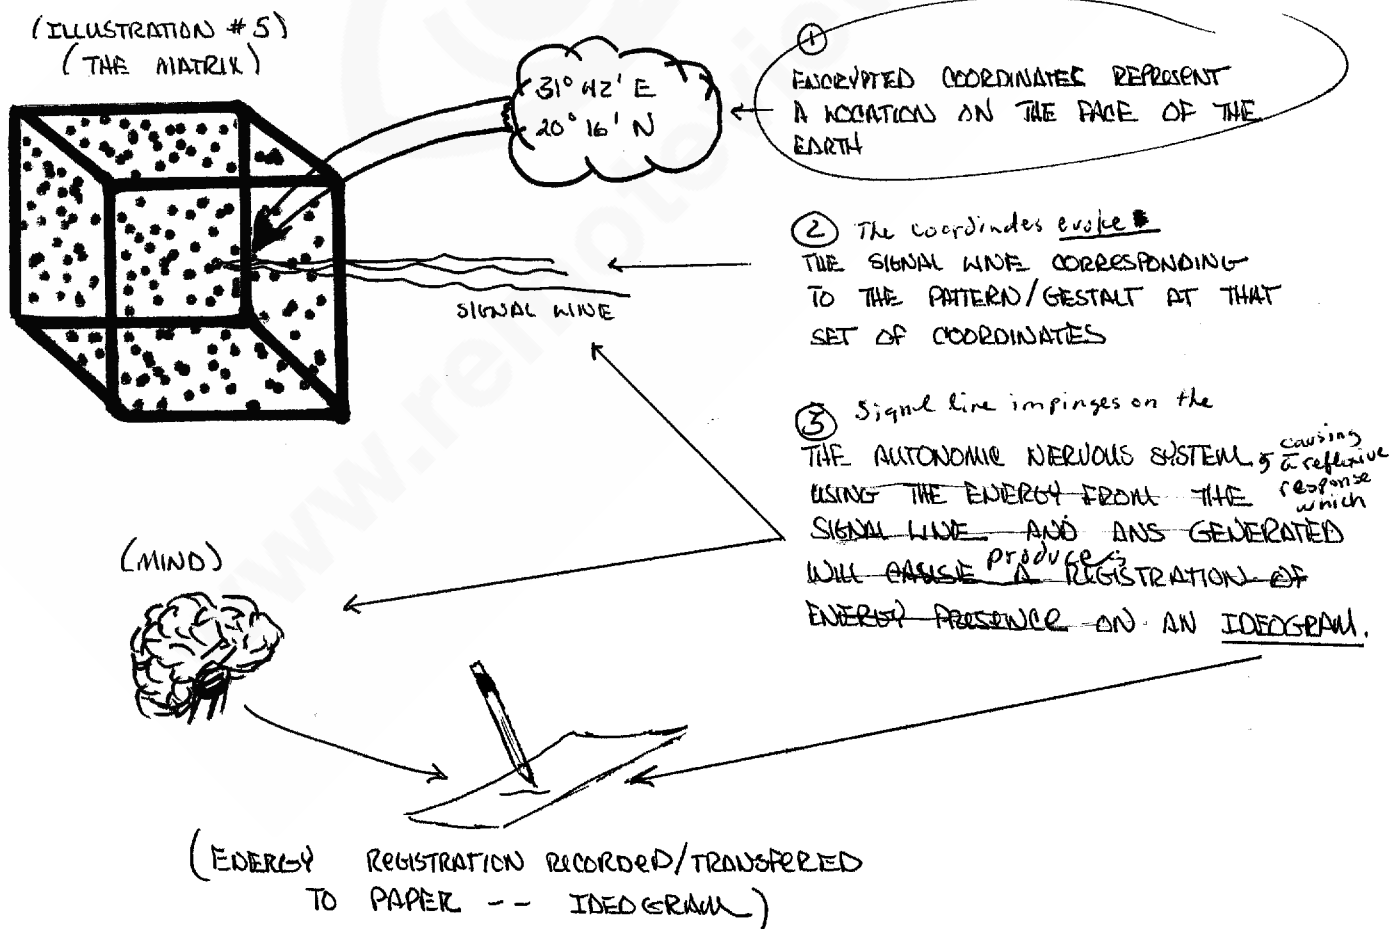 (ILLUSTRATION #5)
(THE MATRIX)
31° 42' E
20° 16' N
1
ENCRYPTED COORDINATES REPRESENT
A LOCATION ON THE FACE OF THE
EARTH
2 The coordinates evoke
THE SIGNAL LINE CORRESPONDING
TO THE PATTERN/GESTALT AT THAT
SET OF COORDINATES
SIGNAL LINE
3 Signal line impinges on the
THE AUTONOMIC NERVOUS SYSTEM, causing
a reflexive
response
which
USING THE ENERGY FROM THE
SIGNAL LINE AND ANS GENERATED
produces
WILL CAUSE A REGISTRATION OF
ENERGY PRESENCE ON AN IDEOGRAM.
(MIND)
(ENERGY REGISTRATION RECORDED/TRANSFERED
TO PAPER -- IDEOGRAM)